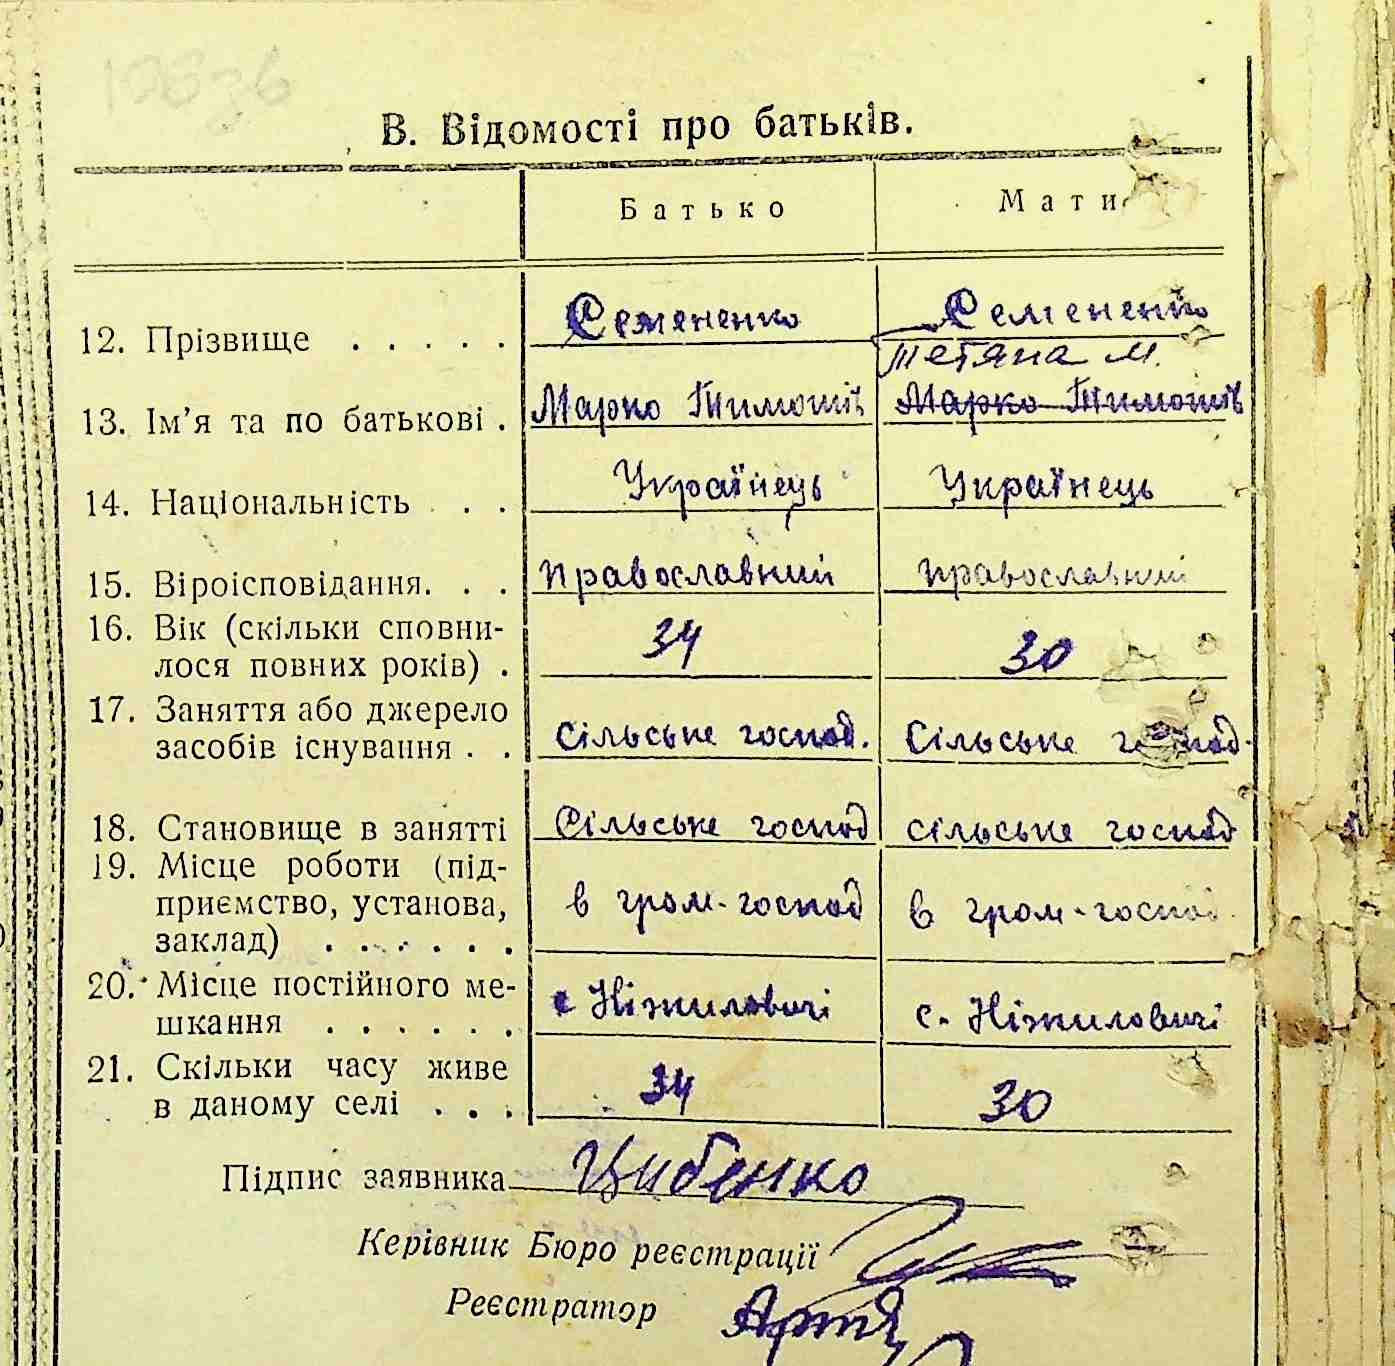 В. Відомості про батьків.
Батько Мати
12. Прізвище . . . . . Семененко Семененко
Тетяна М.
13. Ім’я та по батькові . Марко Тимошів Марко Тимошів
14. Національність . . . Українець Українець
15. Віроісповідання. . . православний православний
16. Вік (скільки сповни-
лося повних років) . 34 30
17. Заняття або джерело
засобів існування . . Сільське господ. Сільське господ.
18. Становище в занятті Сільське господ сільське господ
19. Місце роботи (під-
приємство, установа,
заклад) . . . . . . в гром-господ в гром-господ
20. Місце постійного ме-
шкання . . . . . . с Ніжиловичі с. Ніжиловичі
21. Скільки часу живе
в даному селі . . . 34 30
Підпис заявника Цибенко
Керівник Бюро реєстрації
Реєстратор